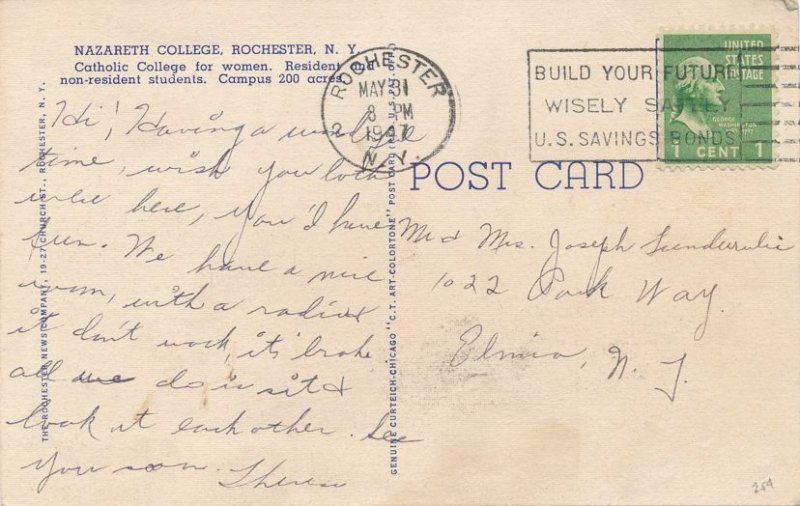 NAZARETH COLLEGE, ROCHESTER, N. Y.
Catholic College for women. Resident and
non-resident students. Campus 200 acres.
Hi! Having a
time, wish you both
were here, you'd have
fun. We have a nice
room, with a radio &
it don't work, it's broke
all we do is sit &
look at each other. See
you soon. Theresa
THE ROCHESTER NEWS COMPANY, 19-27 CHURCH ST., ROCHESTER, N. Y.
GENUINE CURTEICH-CHICAGO "C.T. ART-COLORTONE" POST CARD (REG. U.S. PAT. OFF.)
ROCHESTER
2
MAY 31
8 PM
1947
N.Y.
BUILD YOUR FUTURE
WISELY SAFELY
U.S. SAVINGS BONDS
UNITED
STATES
POSTAGE
GEORGE
WASHINGTON
1 CENT 1
POST CARD
Mr & Mrs. Joseph
1022 Park Way.
Elmira, N. Y.
254